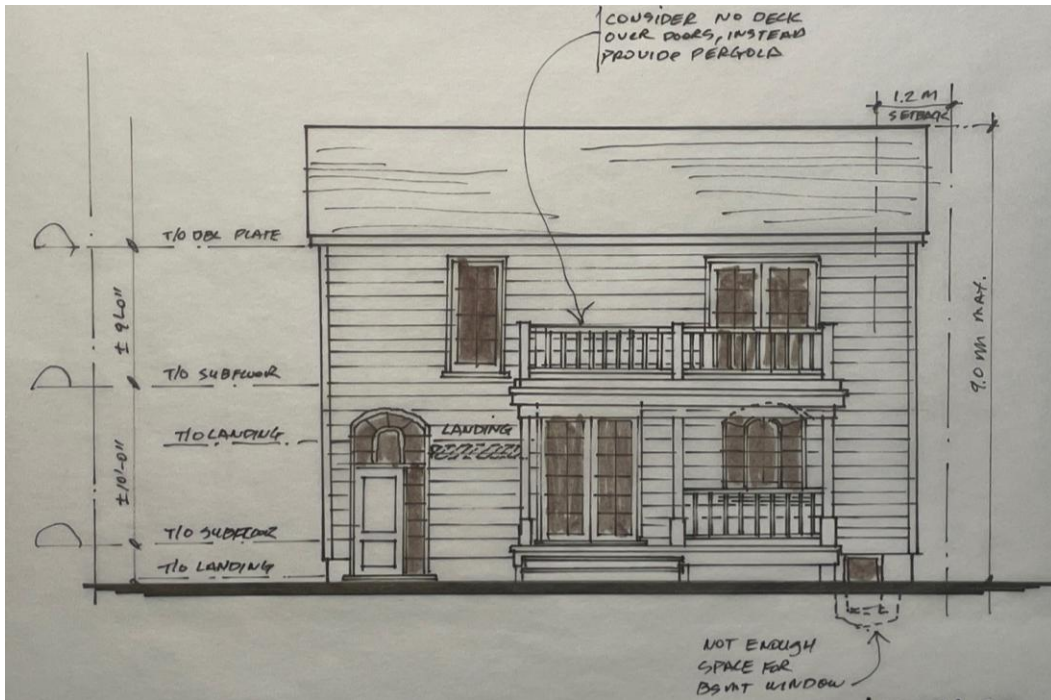 CONSIDER NO DECK
OVER DOORS, INSTEAD
PROVIDE PERGOLA
1.2 M
SETBACK
T/O DBL PLATE
± 9'-0"
T/O SUBFLOOR
T/O LANDING
LANDING
± 10'-0"
T/O SUBFLOOR
T/O LANDING
9.0 M MAX.
NOT ENOUGH
SPACE FOR
BSMT WINDOW